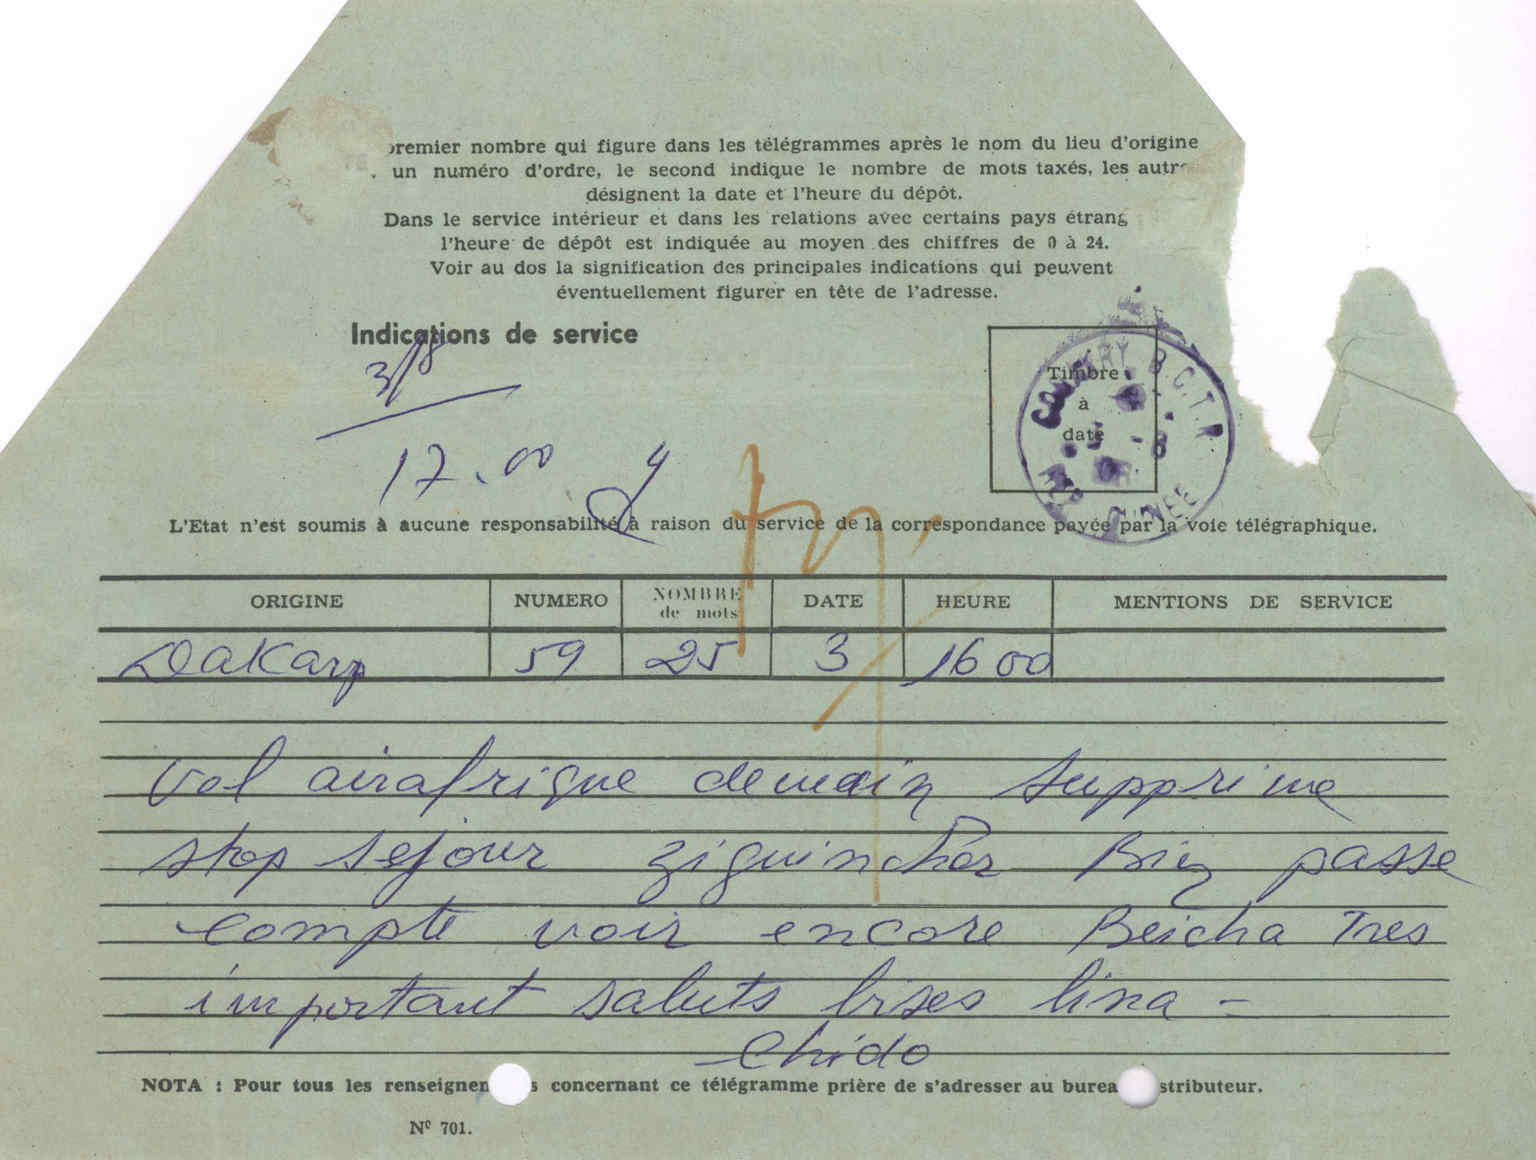 premier nombre qui figure dans les télégrammes après le nom du lieu d'origine
un numéro d'ordre, le second indique le nombre de mots taxés, les autre
désignent la date et l'heure du dépôt.
Dans le service intérieur et dans les relations avec certains pays étrang
l'heure de dépôt est indiquée au moyen des chiffres de 0 à 24.
Voir au dos la signification des principales indications qui peuvent
éventuellement figurer en tête de l'adresse.
Indications de service
3/8
17.00
Timbre
à
date
CONAKRY B.C.T.R
8
L'Etat n'est soumis à aucune responsabilité à raison du service de la correspondance payée par la voie télégraphique.
ORIGINE NUMERO NOMBRE de mots DATE HEURE MENTIONS DE SERVICE
Dakarp 59 25 3 1600
vol airafrique demain supprime
stop sejour ziguinchor Bien passe
compte voir encore Beicha Tres
important saluts bises lina -
Chido
NOTA : Pour tous les renseignen s concernant ce télégramme prière de s'adresser au burea stributeur.
Nº 701.